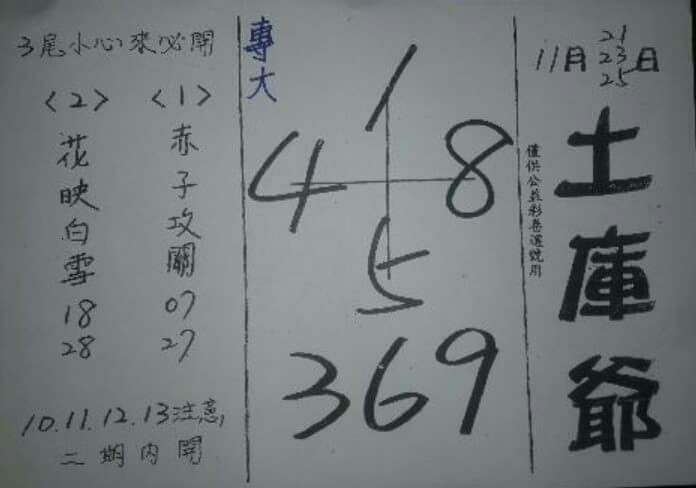 11月21 23 25日
土庫爺
僅供公益彩卷選號用
專大
1
4 8
5
369
3尾小心來必開
<1>
赤子攻關
07
27
<2>
花映白雪
18
28
10.11.12.13注意,
二期内開